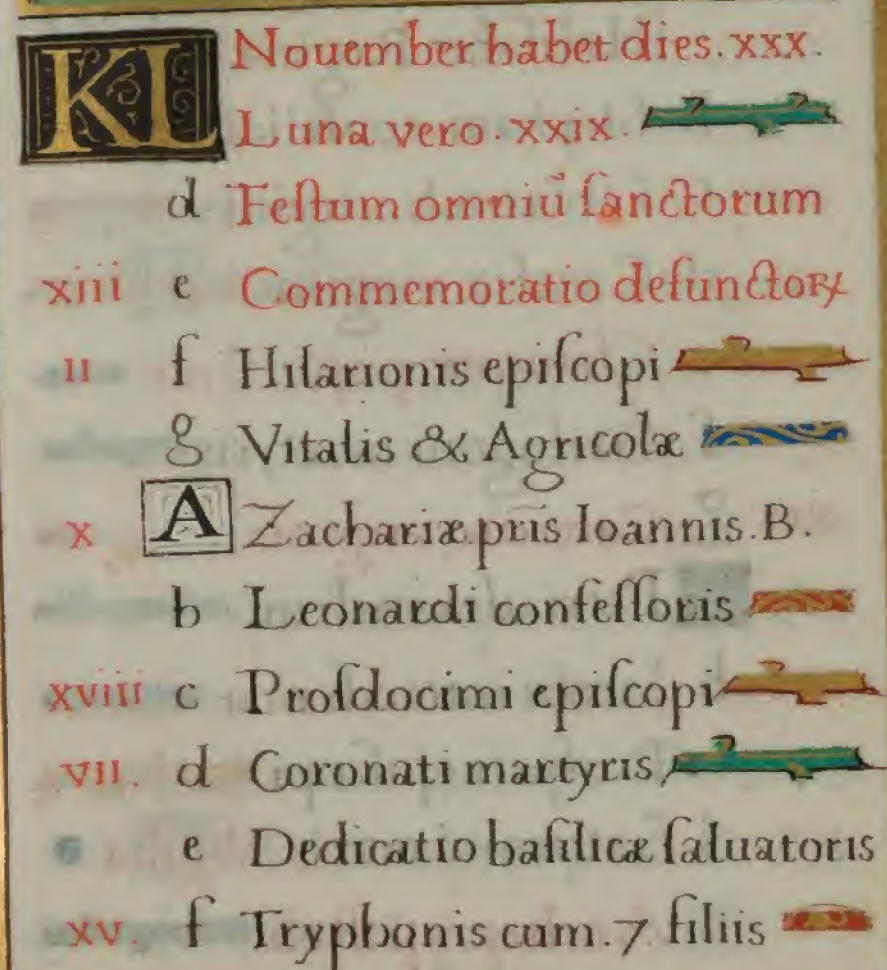 KL Nouember habet dies. xxx.
Luna vero. xxix.
d Feſtum omniū ſanctorum
xiii e Commemoratio defunctoꝝ
ii f Hilarionis epiſcopi
g Vitalis & Agricolæ
x A Zachariæ. pr̄is Ioannis. B.
b Leonardi confeſſoris
xviii c Proſdocimi epiſcopi
vii. d Coronati martyris
e Dedicatio baſilicæ ſaluatoris
xv. f Tryphonis cum. 7 filiis